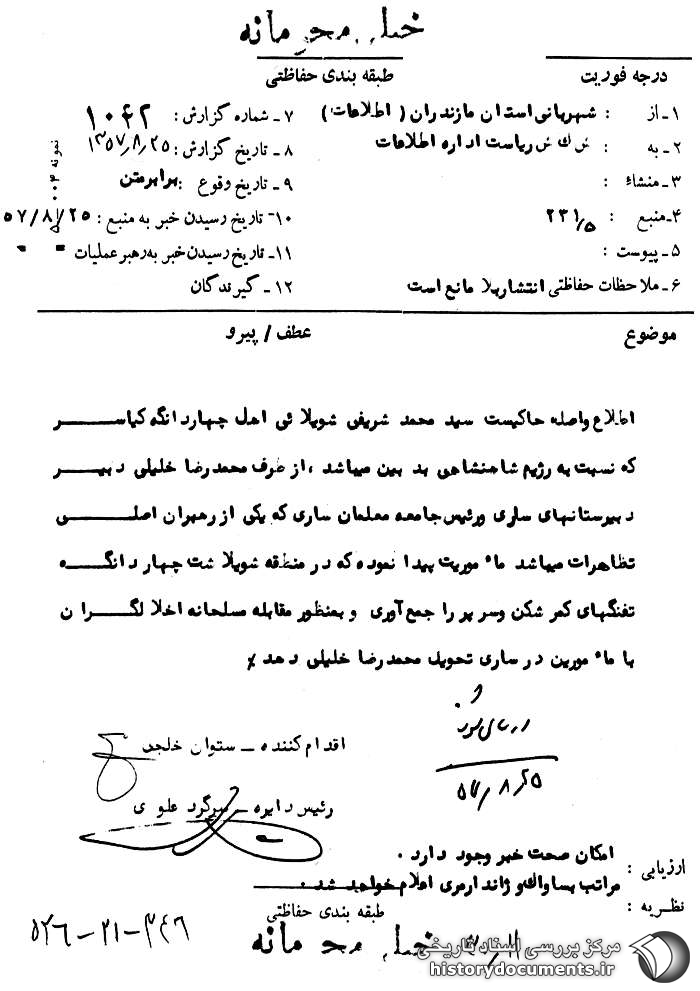 خیلی محرمانه
درجه فوریت
طبقه بندی حفاظتی
۱ـ از : شهربانی استان مازندران ( اطلاعات )
۲ـ به : ش ک ش ریاست اداره اطلاعات
۳ـ منشاء :
۴ـ منبع : ۲۳۱/۵
۵ـ پیوست :
۶ـ ملاحظات حفاظتی انتشار بلا مانع است
۷ـ شماره گزارش : ۱۰۶۲
۸ـ تاریخ گزارش : ۱۳۵۷/۸/۲۵
۹ـ تاریخ وقوع : برابر متن
۱۰ـ تاریخ رسیدن خبر به منبع : ۵۷/۸/۲۵
۱۱ـ تاریخ رسیدن خبر به رهبر عملیات
۱۲ـ گیرندگان
نمونه
موضوع
عطف / پیرو
اطلاع واصله حاکیست سید محمد شریفی شویلائی اهل چهاردانگه کیاسر
که نسبت به رژیم شاهنشاهی بد بین میباشد ، از طرف محمدرضا خلیلی دبیر
دبیرستانهای ساری و رئیس جامعه معلمان ساری که یکی از رهبران اصلی
تظاهرات میباشد ماء موریت پیدا نموده که در منطقه شویلا شت چهار دانگه
تفنگهای کمر شکن و سر پر را جمع آوری و بمنظور مقابله مسلحانه اخلا لگران
با ماء مورین در ساری تحویل محمدرضا خلیلی دهد
۵۷/۸/۲۵
اقدام کننده ـ ستوان خلجی
رئیس دایره ـ سرگرد علوی
ارزیابی : امکان صحت خبر وجود دارد .
نظریه : مراتب بساواک و ژاندارمری اعلام خواهد شد .
طبقه بندی حفاظتی
خیلی محرمانه
۵۲۶-۲۱-۳۴۶
مرکز بررسی اسناد تاریخی
historydocuments.ir